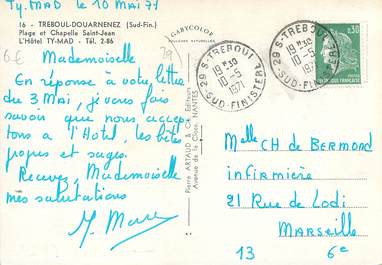 Ty. MAD 10 Mai 71
16 - TREBOUL-DOUARNENEZ (Sud-Fin.)
Plage et Chapelle Saint-Jean
L'Hôtel TY-MAD - Tél. 2-86
GABYCOLOR
COULEURS NATURELLES
6€
79
Mademoiselle
En réponse à votre lettre
du 3 Mai, je vous fais
savoir que nous accep
tons à l'Hôtel, les bêtes
propres et sages.
Recevez, Mademoiselle
mes salutations
Pierre ARTAUD & Cie Editeurs
Avenue de la Close, NANTES
29 S-TREBOUL
19H30
10-5
1971
SUD-FINISTERE
29 S-TREBOUL
19H30
10-5
1971
SUD-FINISTERE
0,30
REPUBLIQUE FRANÇAISE
Melle CH DE BERMOND
INFIRMIÈRE
21 RUE de LODI
MARSEILLE
13 6e